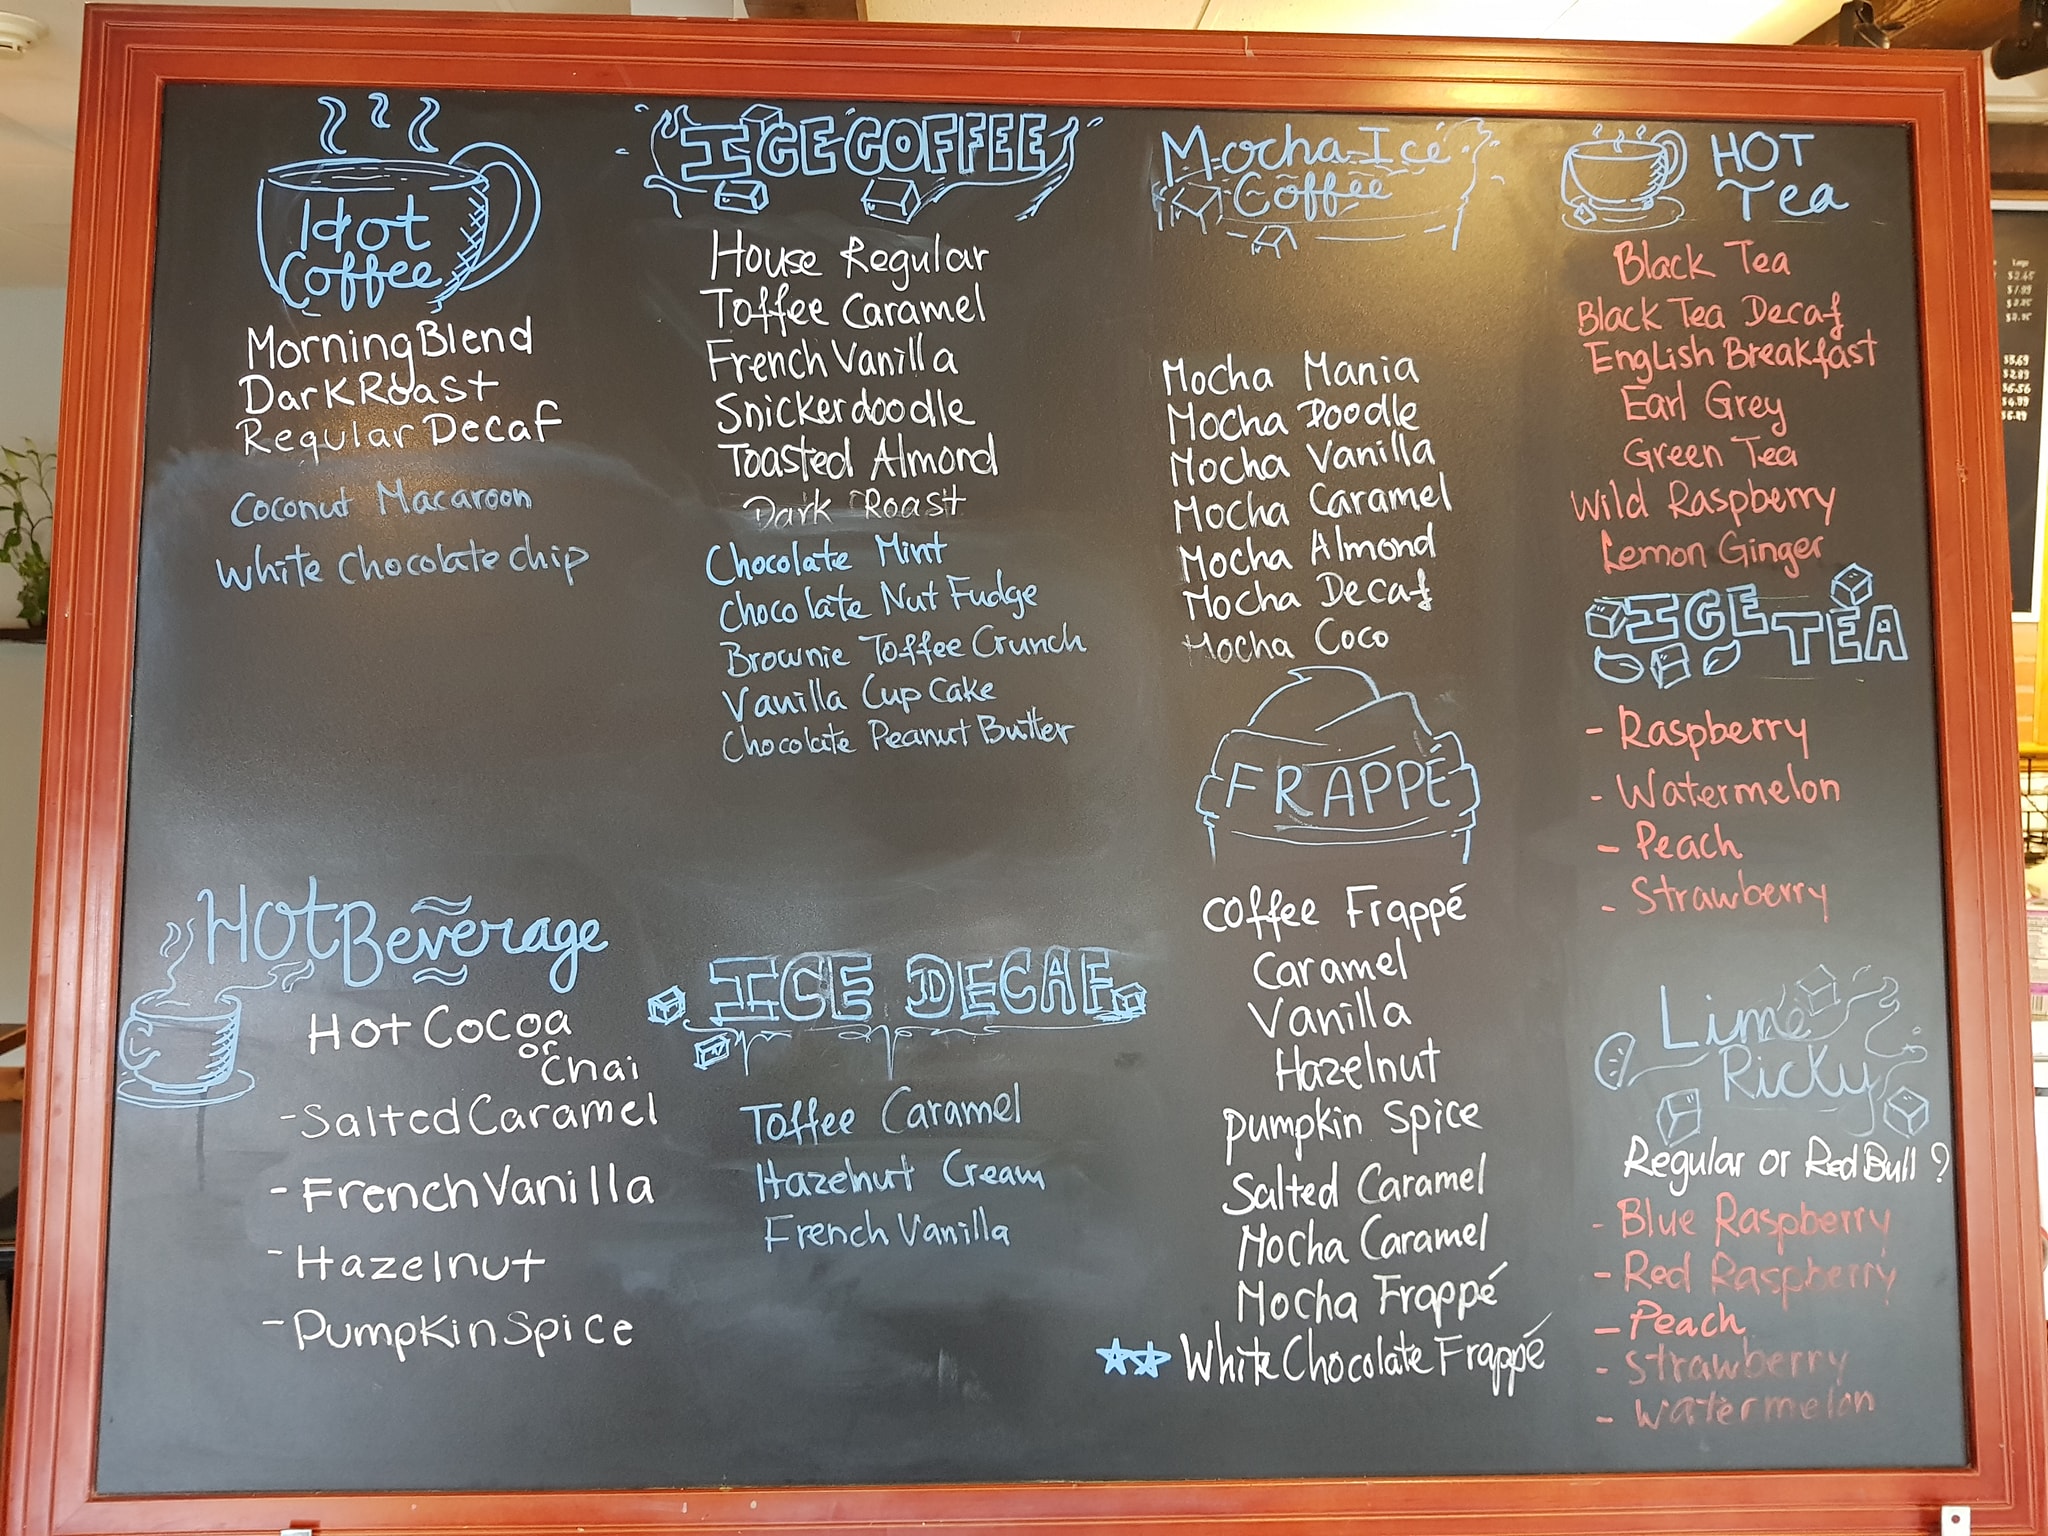 Hot
Coffee
Morning Blend
Dark Roast
Regular Decaf
Coconut Macaroon
White Chocolate chip
HOT Beverage
Hot Cocoa
or
Chai
- Salted Caramel
- French Vanilla
- Hazelnut
- Pumpkin Spice
ICE COFFEE
House Regular
Toffee Caramel
French Vanilla
Snickerdoodle
Toasted Almond
Dark Roast
Chocolate Mint
Chocolate Nut Fudge
Brownie Toffee Crunch
Vanilla Cup Cake
Chocolate Peanut Butter
ICE DECAF
Toffee Caramel
Hazelnut Cream
French Vanilla
Mocha Ice
Coffee
Mocha Mania
Mocha Doodle
Mocha Vanilla
Mocha Caramel
Mocha Almond
Mocha Decaf
Mocha Coco
FRAPPÉ
Coffee Frappé
Caramel
Vanilla
Hazelnut
Pumpkin Spice
Salted Caramel
Mocha Caramel
Mocha Frappé
White Chocolate Frappé
HOT
Tea
Black Tea
Black Tea Decaf
English Breakfast
Earl Grey
Green Tea
Wild Raspberry
Lemon Ginger
ICE TEA
- Raspberry
- Watermelon
- Peach
- Strawberry
Lime
Ricky
Regular or Red Bull ?
- Blue Raspberry
- Red Raspberry
- Peach
- Strawberry
- Watermelon